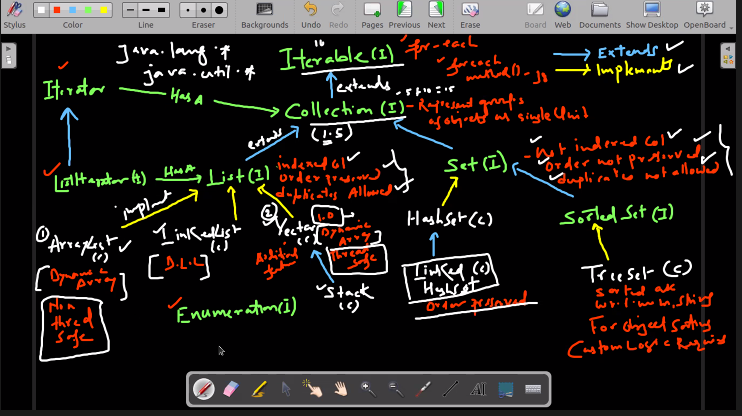 Stylus
Color
Line
Eraser
Backgrounds
Undo
Redo
Pages
Previous
Next
Erase
Board
Web
Documents
Show Desktop
OpenBoard
java.lang.*
java.util.*
Iterable (I)
for-each
foreach
method()
Extends
Implements
Iterator
Has A
extends
Collection (I)
- Represent group
of objects as single Unit
(1.5)
extends
ListIterator (I)
Has A
List (I)
indexed Col
Order preserved
duplicates Allowed
Set (I)
- Not indexed Col
Order not preserved
duplicates not allowed
implement
① ArrayList
(c)
LinkedList
(c)
② Vector
(c)
1.0
Dynamic
Array
Thread
Safe
HashSet (c)
Sorted Set (I)
Dynamic
Array
D.L.L
Stack
(c)
Linked (c)
HashSet
Order preserved
TreeSet (c)
Non
thred
Safe
Enumeration(I)
For object Sorting
Custom Logic Required